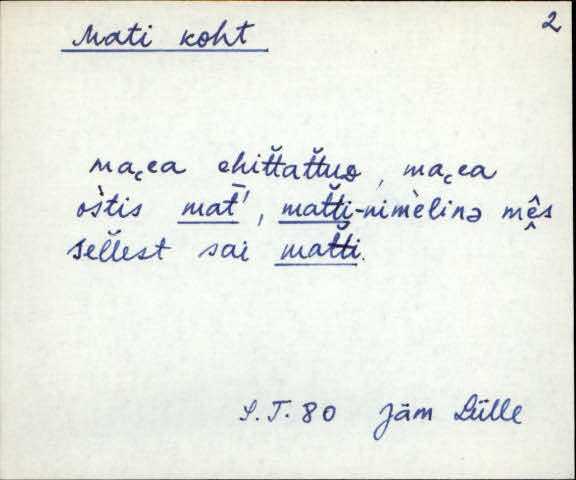 2
Mati koht
maꞔea ehiťtaťtuᴅ, maꞔea
òštis mat̄', maťti-nimèlinə mê̬s
seľlest sai maťti.
S.T. 80 Jäm Lülle